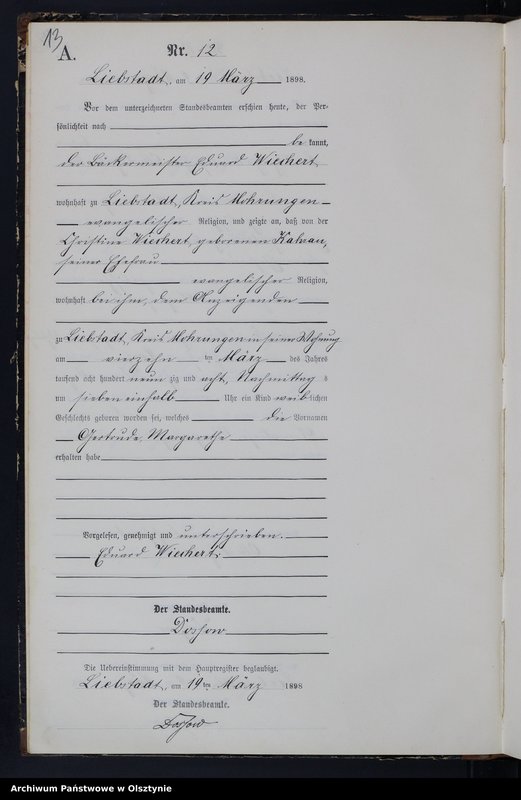 13
A.
Nr. 12
Liebstadt, am 19 März 1898.
Vor dem unterzeichneten Standesbeamten erschien heute, der Per-
sönlichkeit nach
be kannt,
der Bäckermeister Eduard Wiechert
wohnhaft zu Liebstadt, Kreis Mohrungen
evangelischer Religion, und zeigte an, daß von der
Christine Wiechert geborenen
seiner Ehefrau
evangelischer Religion,
wohnhaft bei ihm, dem Anzeigenden
zu Liebstadt, Kreis Mohrungen in seiner Wohnung
am vierzehn ten März des Jahres
tausend acht hundert neun zig und acht, Nachmittag s
um sieben einhalb Uhr ein Kind weib lichen
Geschlechts geboren worden sei, welches die Vornamen
Gertrude, Margarethe
erhalten habe
Vorgelesen, genehmigt und unterschrieben.
Eduard Wiechert.
Der Standesbeamte.
Die Uebereinstimmung mit dem Hauptregister beglaubigt.
Liebstadt, am 19 ten März 1898
Der Standesbeamte.
Archiwum Państwowe w Olsztynie